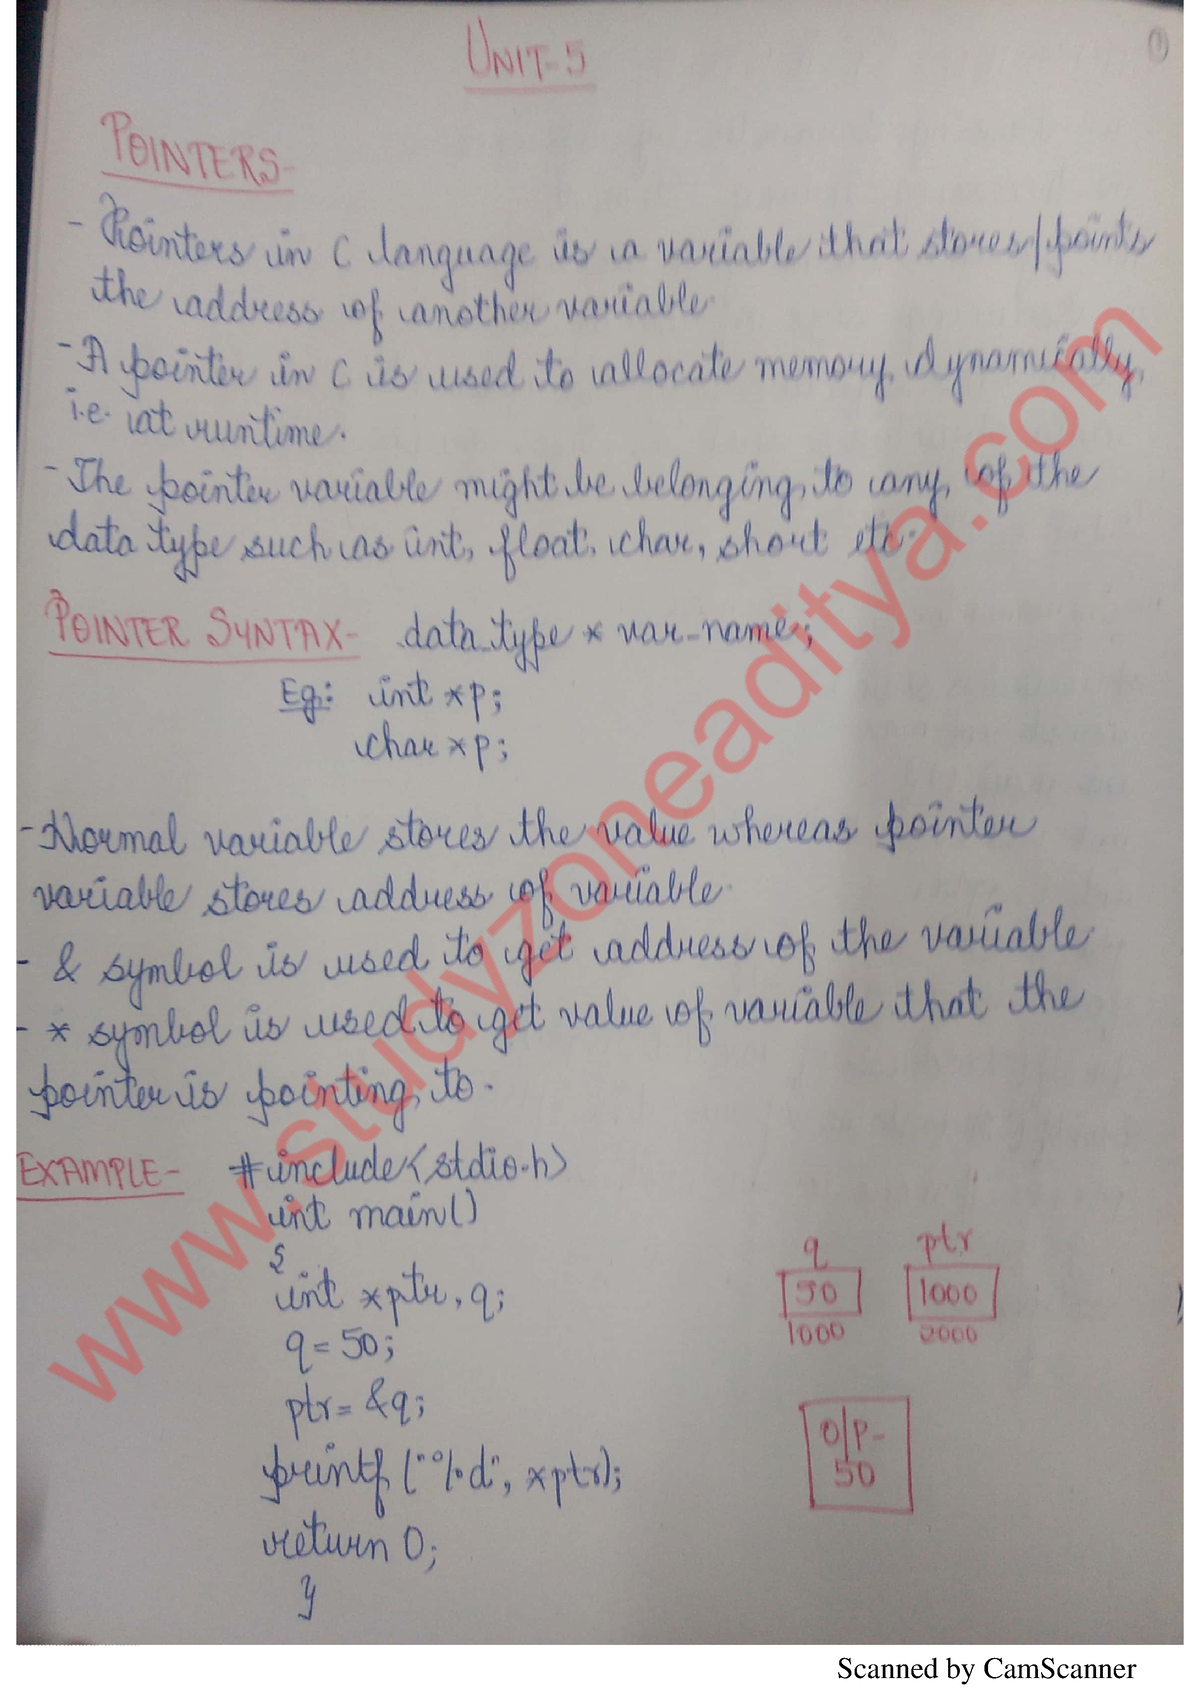 UNIT-5
1
POINTERS-
- Pointers in C language is a variable that stores/points
the address of another variable.
- A pointer in C is used to allocate memory dynamically,
i.e. at runtime.
- The pointer variable might be belonging to any of the
data type such as int, float, char, short etc.
POINTER SYNTAX- data_type * var_name;
Eg: int *p;
char *p;
- Normal variable stores the value whereas pointer
variable stores address of variable.
- & symbol is used to get address of the variable.
- * symbol is used to get value of variable that the
pointer is pointing to.
EXAMPLE- #include<stdio.h>
int main()
{
int *ptr, q;
q = 50;
ptr = &q;
printf ("%d", *ptr);
return 0;
}
q ptr
50 1000
1000 2000
O/P-
50
www.studyzoneaditya.com
Scanned by CamScanner